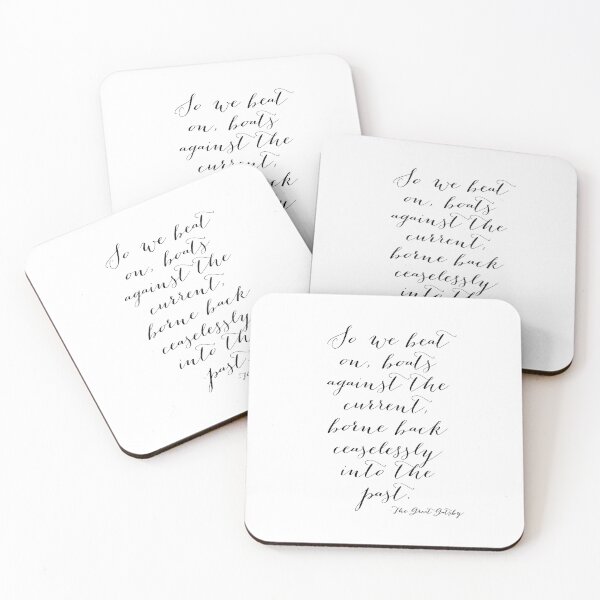 So we beat
on, boats
against the
current,
back
So we beat
on, boats
against the
current,
borne back
ceaselessly
into the
So we beat
on, boats
against the
current,
borne back
ceaselessly
into the
past.
So we beat
on, boats
against the
current,
borne back
ceaselessly
into the
past.
The Great Gatsby